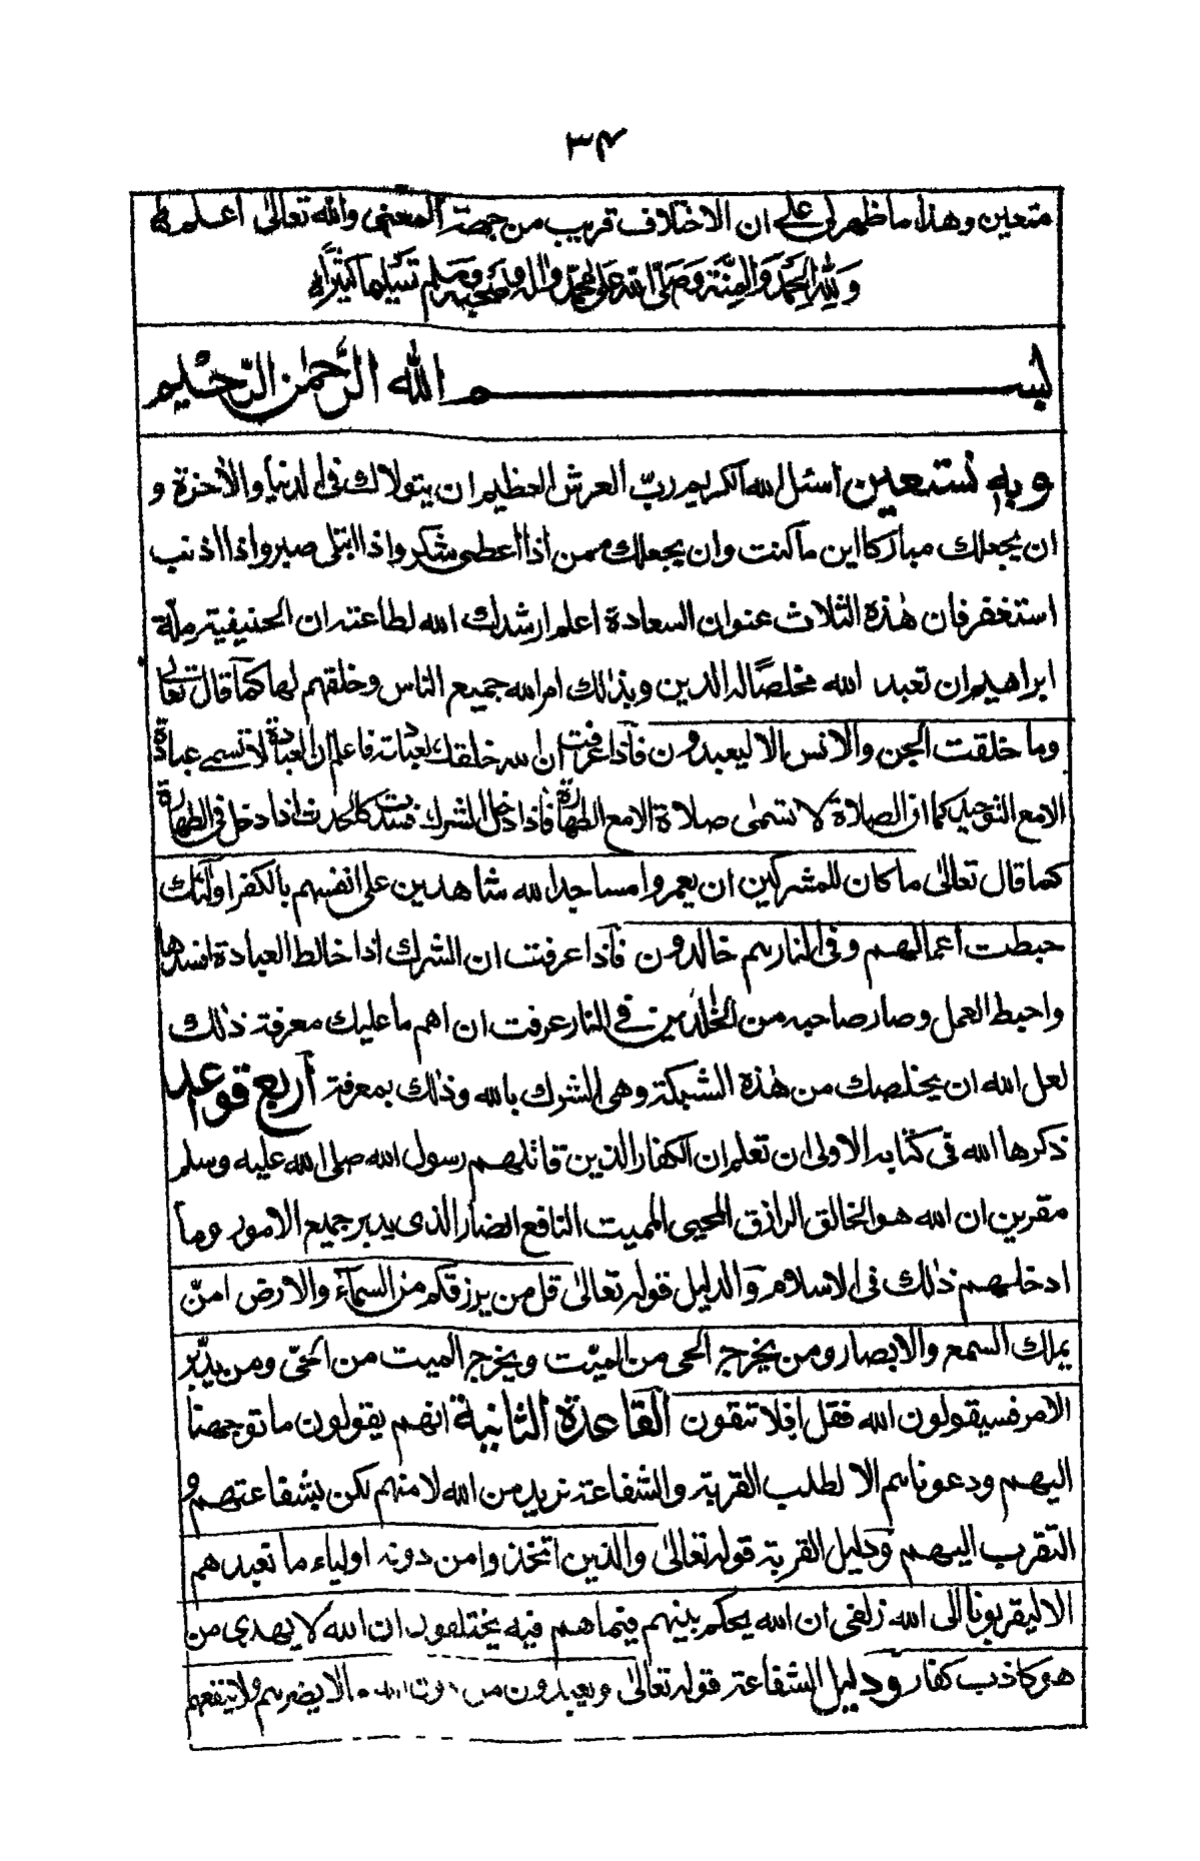 ٣٤
متعين وهذا ما ظهر لى على ان الاختلاف قريب من جهة المعنى والله تعالىٰ اعلم
وَلِلّٰهِ الْحَمْدُ وَالْمِنَّةُ وَصَلَّى اللّٰهُ عَلٰى مُحَمَّدٍ وَاٰلِهٖ وَصَحْبِهٖ وَسَلَّمَ تَسْلِيْمًا كَثِيْرًا
بسم الله الرَّحمٰن الرَّحيم
وبه نستعين اسئل الله الكريم ربّ العرش العظيم ان يتولاك فى الدنيا والأخرة و
ان يجعلك مباركا اين ما كنت وان يجعلك ممن اذا اعطى شكر واذا ابتلى صبر واذا اذنب
استغفر فان هٰذه الثلاث عنوان السعادة اعلم ارشدك الله لطاعته ان الحنيفية ملّة
ابراهيم ان تعبد الله مخلصًا له الدين وبذٰلك امر الله جميع الناس وخلقهم لها كما قال تعالى
وما خلقت الجن والانس الا ليعبدون فاذا عرفت ان الله خلقك لعبادته فاعلم ان العبادة لا تسمى عبادة
الا مع التوحيد كما ان الصلاة لا تسمىٰ صلاة الا مع الطهارة فاذا دخل الشرك فسدت كالحدث اذا دخل فى الطهارة
كما قال تعالىٰ ما كان للمشركين ان يعمروا مساجد الله شاهدين على انفسهم بالكفر اولٰئك
حبطت اعمالهم وفى النار هم خالدون فاذا عرفت ان الشرك اذا خالط العبادة افسدها
واحبط العمل وصار صاحبه من الخٰلدين فى النار عرفت ان اهم ما عليك معرفة ذٰلك
لعل الله ان يخلصك من هٰذه الشبكة وهى الشرك بالله وذٰلك بمعرفة أربع قوعد
ذكرها الله فى كتابه الاولى ان تعلم ان الكفار الذين قاتلهم رسول الله صلى الله عليه وسلم
مقرين ان الله هو الخالق الرازق المحيى المميت النافع الضار الذى يدبر جميع الامور وما
ادخلهم ذٰلك فى الاسلام والدليل قوله تعالىٰ قل من يرزقكم من السماء والارض امنّ
يملك السمع والابصار ومن يخرج الحى من الميّت ويخرج الميت من الحىّ ومن يدبّر
الامر فسيقولون الله فقل افلا تتقون القاعدة الثانية انهم يقولون ما توجهنا
اليهم ودعوناهم الا لطلب القربة والشفاعة نريد من الله لا منهم لكن بشفاعتهم و
التقرب اليهم ودليل القربة قوله تعالىٰ والذين اتخذوا من دونه اولياء ما نعبدهم
الا ليقربونا الى الله زلفى ان الله يحكم بينهم فيما هم فيه يختلفون ان الله لا يهدى من
هو كاذب كفار ودليل الشفاعة قوله تعالىٰ ويعبدون من دون الله ما لا يضرهم ولا ينفعهم